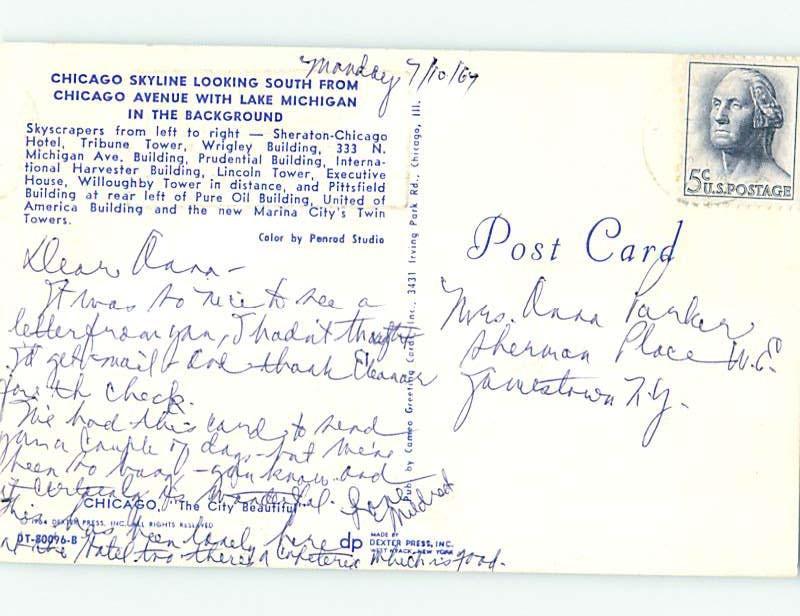 Monday 7/10/67
CHICAGO SKYLINE LOOKING SOUTH FROM
CHICAGO AVENUE WITH LAKE MICHIGAN
IN THE BACKGROUND
Skyscrapers from left to right — Sheraton-Chicago
Hotel, Tribune Tower, Wrigley Building, 333 N.
Michigan Ave. Building, Prudential Building, Interna-
tional Harvester Building, Lincoln Tower, Executive
House, Willoughby Tower in distance, and Pittsfield
Building at rear left of Pure Oil Building, United of
America Building and the new Marina City's Twin
Towers.
Color by Penrod Studio
Dear Anna -
It was so nice to see a
letter from you, I hadn't thought
I'd get mail - and thank Eleanor
for th check.
We had this card to send
you a couple of days - but we're
been so busy - you know and
it certainly is wonderful. Love
Mildred
CHICAGO, "The City Beautiful"
This has been lovely here
at the hotel too there's a cafeteria which is good.
© 1964 DEXTER PRESS, INC. ALL RIGHTS RESERVED
DT-80096-B
Pub. by Cameo Greeting Cards, Inc., 3431 Irving Park Rd., Chicago, Ill.
dp
MADE BY
DEXTER PRESS, INC.
WEST NYACK, NEW YORK
5c
U.S. POSTAGE
Post Card
Mrs. Anna Parker
Sherman Place W.E.
Jamestown N.Y.